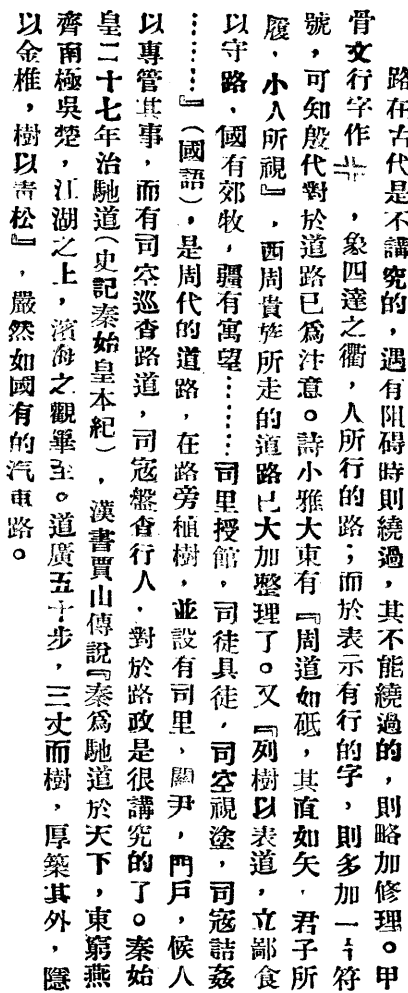 路在古代是不講究的，遇有阻碍時則繞過，其不能繞過的，則略加修理。甲
骨文行字作，象四達之衢，人所行的路；而於表示有行的字，則多加一彳符
號，可知殷代對於道路已爲注意。詩小雅大東有『周道如砥，其直如矢，君子所
履，小人所視』，西周貴族所走的道路已大加整理了。又『列樹以表道，立鄙食
以守路，國有郊牧，疆有寓望……司里授館，司徒具徒，司空視塗，司寇詰姦
……』（國語），是周代的道路，在路旁植樹，並設有司里、關尹，門戶，候人
以專管其事，而有司空巡查路道，司寇盤查行人，對於路政是很講究的了。秦始
皇二十七年治馳道（史記秦始皇本紀），漢書賈山傳說『秦爲馳道於天下，東窮燕
齊南極吳楚，江湖之上，濱海之觀畢至。道廣五十步，三丈而樹，厚築其外，隱
以金椎，樹以青松』，嚴然如國有的汽車路。